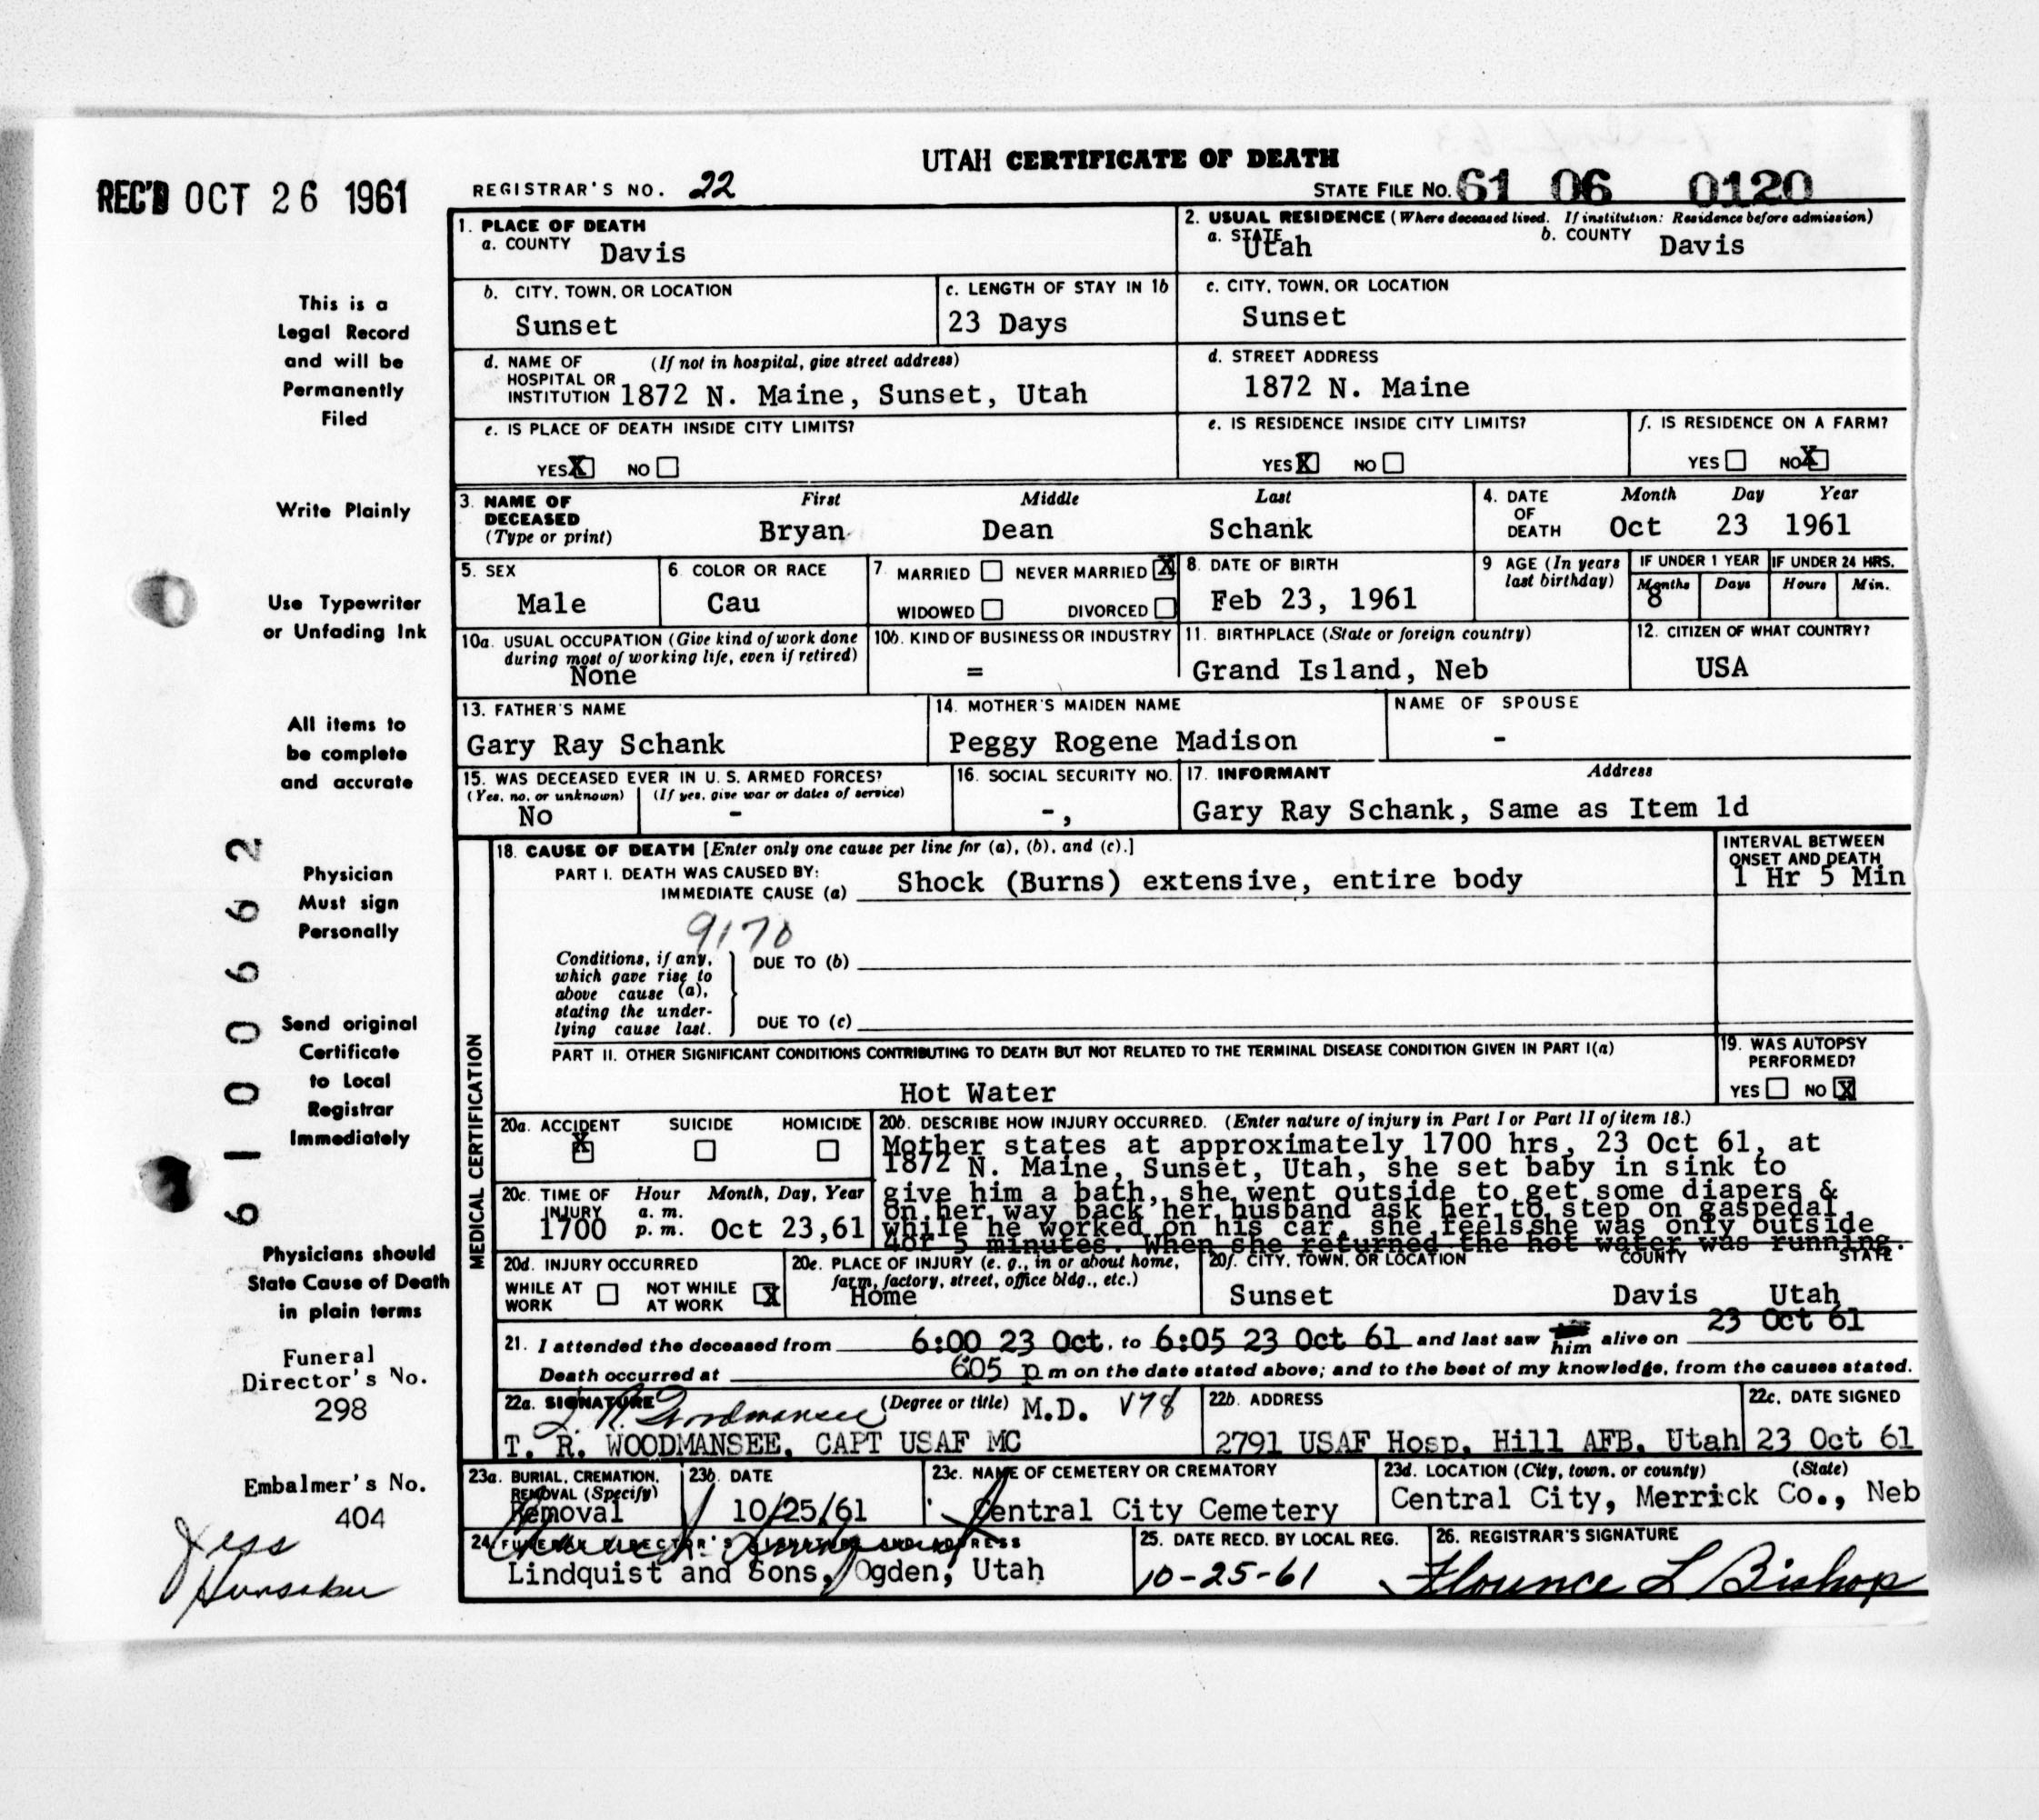 UTAH CERTIFICATE OF DEATH
REC'D OCT 26 1961
REGISTRAR'S NO. 22
STATE FILE NO. 61 06 0120
1. PLACE OF DEATH
a. COUNTY Davis
2. USUAL RESIDENCE (Where deceased lived. If institution: Residence before admission)
a. STATE Utah b. COUNTY Davis
b. CITY, TOWN, OR LOCATION
Sunset
c. LENGTH OF STAY IN 1b
23 Days
c. CITY, TOWN, OR LOCATION
Sunset
d. NAME OF HOSPITAL OR INSTITUTION (If not in hospital, give street address)
1872 N. Maine, Sunset, Utah
d. STREET ADDRESS
1872 N. Maine
e. IS PLACE OF DEATH INSIDE CITY LIMITS?
YES X NO
e. IS RESIDENCE INSIDE CITY LIMITS?
YES X NO
f. IS RESIDENCE ON A FARM?
YES NO X
3. NAME OF DECEASED (Type or print)
First Middle Last
Bryan Dean Schank
4. DATE OF DEATH
Month Day Year
Oct 23 1961
5. SEX
Male
6. COLOR OR RACE
Cau
7. MARRIED NEVER MARRIED X
WIDOWED DIVORCED
8. DATE OF BIRTH
Feb 23, 1961
9 AGE (In years last birthday)
IF UNDER 1 YEAR IF UNDER 24 HRS.
Months Days Hours Min.
8
10a. USUAL OCCUPATION (Give kind of work done during most of working life, even if retired)
None
10b. KIND OF BUSINESS OR INDUSTRY
=
11. BIRTHPLACE (State or foreign country)
Grand Island, Neb
12. CITIZEN OF WHAT COUNTRY?
USA
13. FATHER'S NAME
Gary Ray Schank
14. MOTHER'S MAIDEN NAME
Peggy Rogene Madison
NAME OF SPOUSE
-
15. WAS DECEASED EVER IN U. S. ARMED FORCES?
(Yes, no, or unknown) (If yes, give war or dates of service)
No -
16. SOCIAL SECURITY NO.
-,
17. INFORMANT Address
Gary Ray Schank, Same as Item 1d
MEDICAL CERTIFICATION
18. CAUSE OF DEATH [Enter only one cause per line for (a), (b), and (c).]
PART I. DEATH WAS CAUSED BY:
IMMEDIATE CAUSE (a) Shock (Burns) extensive, entire body
INTERVAL BETWEEN ONSET AND DEATH
1 Hr 5 Min
9170
Conditions, if any, which gave rise to above cause (a), stating the underlying cause last.
DUE TO (b)
DUE TO (c)
PART II. OTHER SIGNIFICANT CONDITIONS CONTRIBUTING TO DEATH BUT NOT RELATED TO THE TERMINAL DISEASE CONDITION GIVEN IN PART I(a)
Hot Water
19. WAS AUTOPSY PERFORMED?
YES NO X
20a. ACCIDENT SUICIDE HOMICIDE
X
20b. DESCRIBE HOW INJURY OCCURRED. (Enter nature of injury in Part I or Part II of item 18.)
Mother states at approximately 1700 hrs, 23 Oct 61, at
1872 N. Maine, Sunset, Utah, she set baby in sink to
give him a bath, she went outside to get some diapers &
on her way back her husband ask her to step on gaspedal
while he worked on his car, she feelsshe was only outside
4or 5 minutes. When she returned the hot water was running.
20c. TIME OF INJURY Hour a. m. p. m. Month, Day, Year
1700 Oct 23,61
20d. INJURY OCCURRED
WHILE AT WORK NOT WHILE AT WORK X
20e. PLACE OF INJURY (e. g., in or about home, farm, factory, street, office bldg., etc.)
Home
20f. CITY, TOWN, OR LOCATION COUNTY STATE
Sunset Davis Utah
21. I attended the deceased from 6:00 23 Oct. to 6:05 23 Oct 61 and last saw him alive on 23 Oct 61
Death occurred at 605 p m on the date stated above; and to the best of my knowledge, from the causes stated.
22a. SIGNATURE (Degree or title) M.D. V78
T. R. Woodmansee
T. R. WOODMANSEE, CAPT USAF MC
22b. ADDRESS
2791 USAF Hosp. Hill AFB, Utah
22c. DATE SIGNED
23 Oct 61
23a. BURIAL, CREMATION, REMOVAL (Specify)
Removal
23b. DATE
10/25/61
23c. NAME OF CEMETERY OR CREMATORY
Central City Cemetery
23d. LOCATION (City, town, or county) (State)
Central City, Merrick Co., Neb
24. FUNERAL DIRECTOR'S SIGNATURE AND ADDRESS
Lindquist and Sons, Ogden, Utah
25. DATE RECD. BY LOCAL REG.
10-25-61
26. REGISTRAR'S SIGNATURE
Flounce L Bishop
This is a
Legal Record
and will be
Permanently
Filed
Write Plainly
Use Typewriter
or Unfading Ink
All items to
be complete
and accurate
Physician
Must sign
Personally
Send original
Certificate
to Local
Registrar
Immediately
Physicians should
State Cause of Death
in plain terms
Funeral
Director's No.
298
Embalmer's No.
404
Jess
Hunsaker
6100662